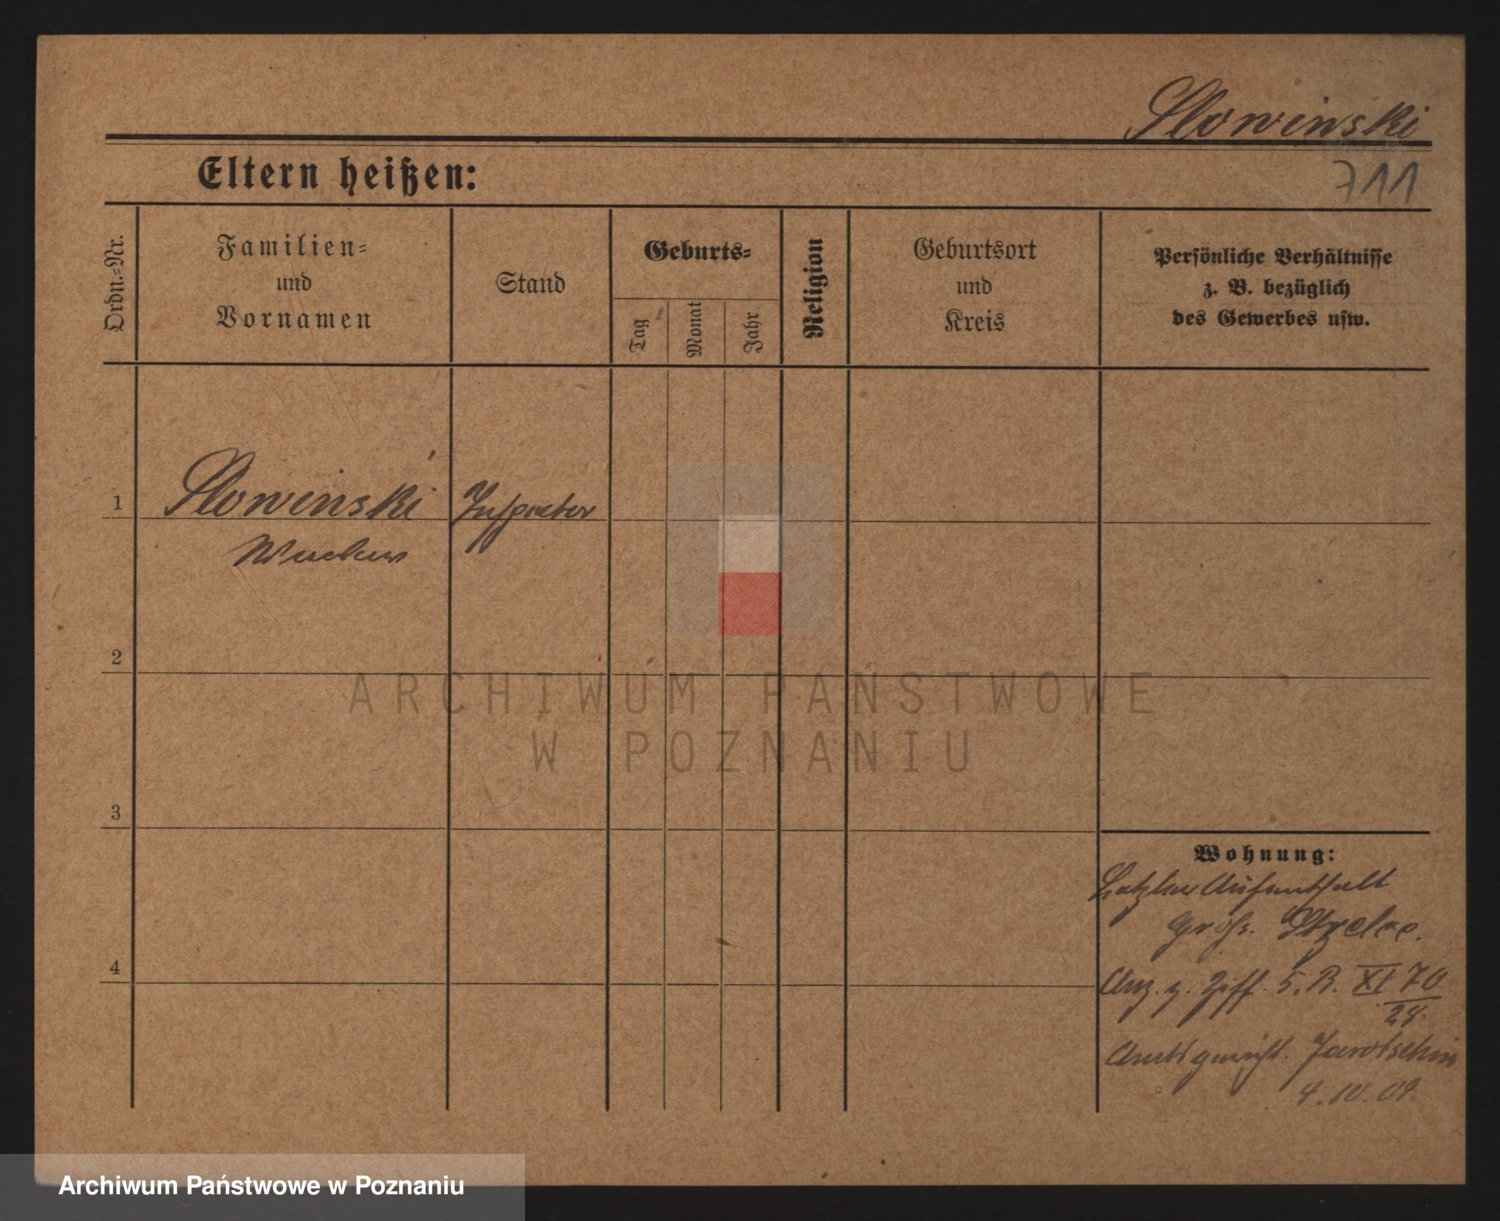 Slowinski
711
Eltern heißen:
Ordn.-Nr.
Familien-
und
Vornamen
Stand
Geburts-
Tag
Monat
Jahr
Religion
Geburtsort
und
Kreis
Persönliche Verhältnisse
z. B. bezüglich
des Gewerbes usw.
1
Slowinski
Inspector
Waclaw
2
ARCHIWUM PAŃSTWOWE
W POZNANIU
3
Wohnung:
Letzter Aufenthalt
Gross. Strelce.
4
Anz. z. Ziff. 5. R. XI 70
24.
Amtsgericht. Jarotschin
4.10.09.
Archiwum Państwowe w Poznaniu